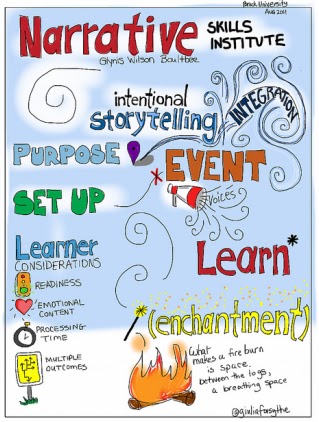 Brock University
Aug 2011
Narrative
SKILLS
INSTITUTE
Glynis Wilson Boultbee
intentional
storytelling
INTEGRATION
PURPOSE
EVENT
SET UP
voices
Learner
CONSIDERATIONS
Learn*
READINESS
EMOTIONAL
CONTENT
PROCESSING
TIME
MULTIPLE
OUTCOMES
(enchantment)
What
makes a fire burn
is space
between the logs,
a breathing space
@giuliaforsythe